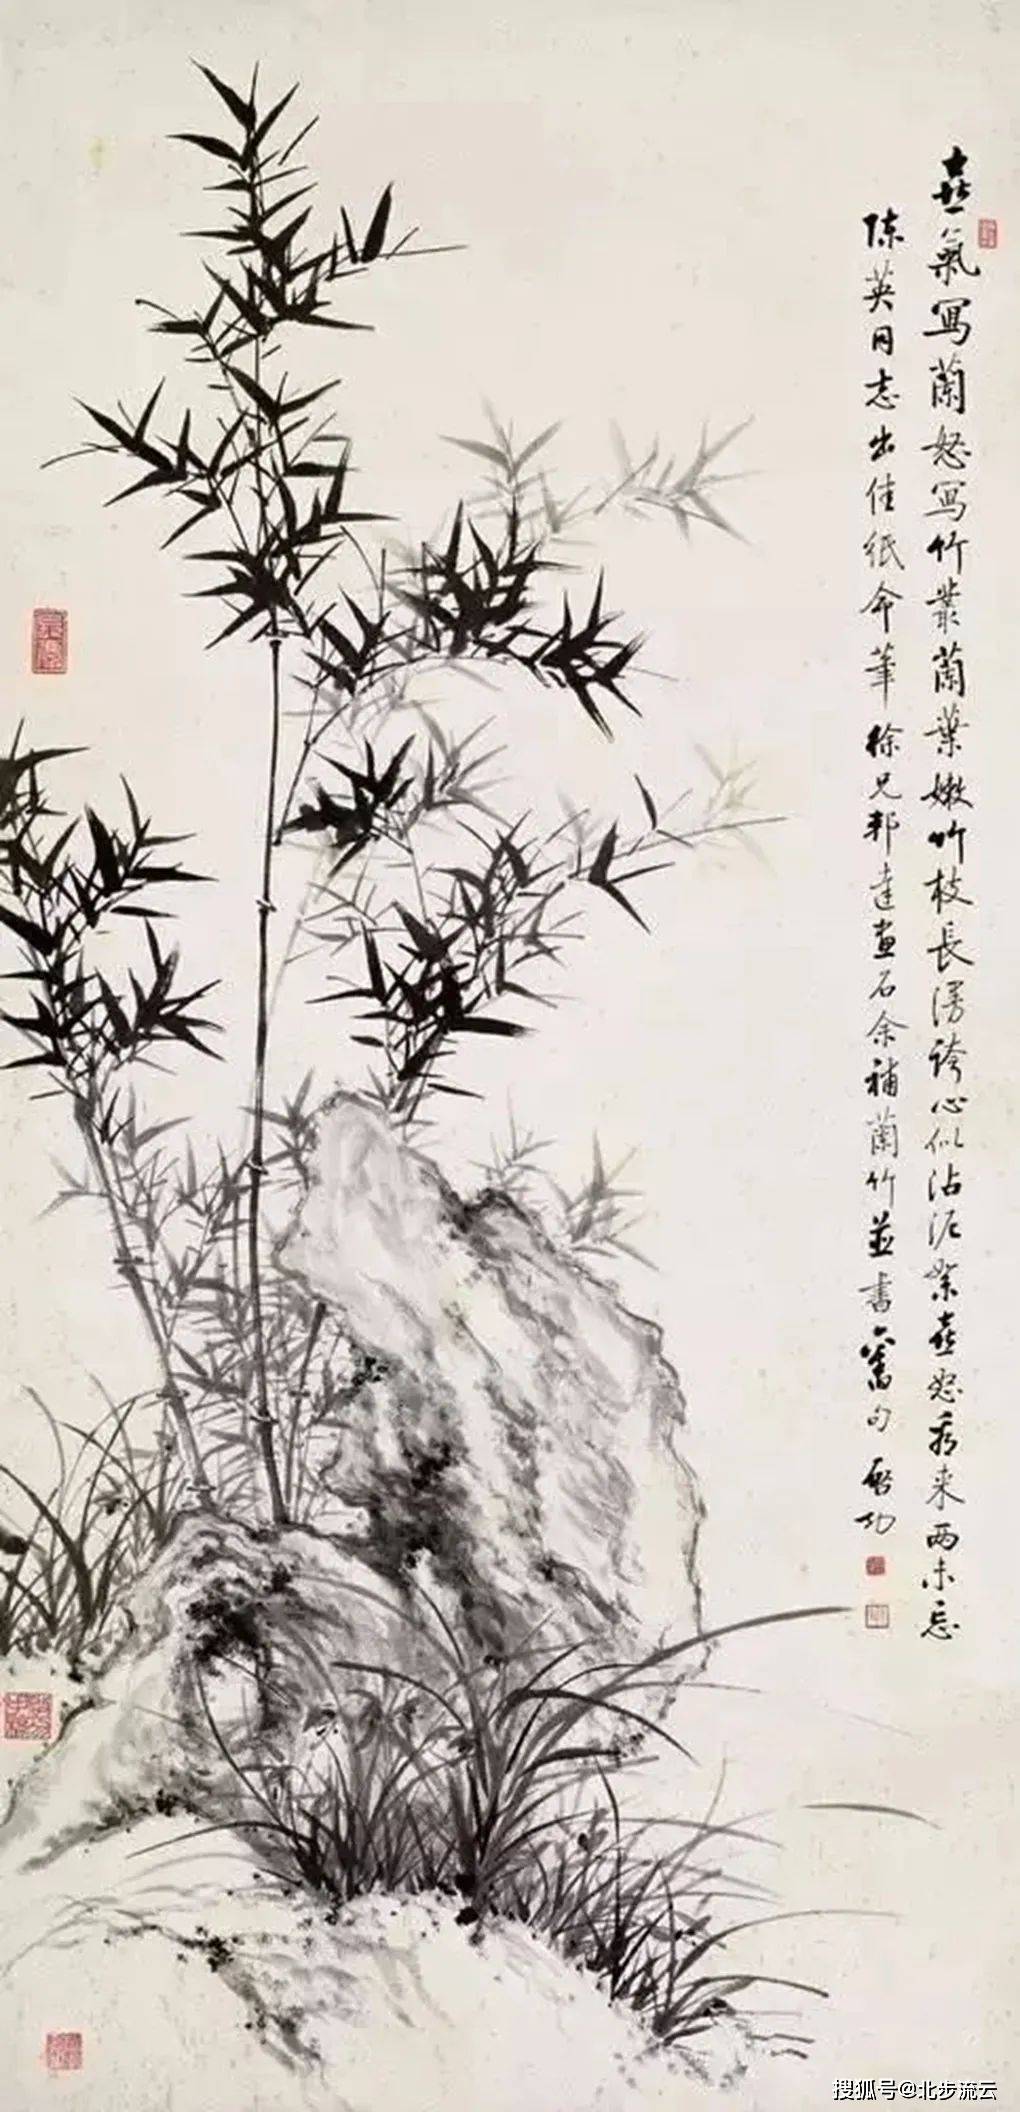 喜氣寫蘭怒寫竹叢蘭葉嫩竹枝長漫誇心似沾泥絮喜怒看來兩未忘
陳英同志出佳紙命筆徐兄邦達畫石余補蘭竹並書舊句啟功
搜狐号@北步流云